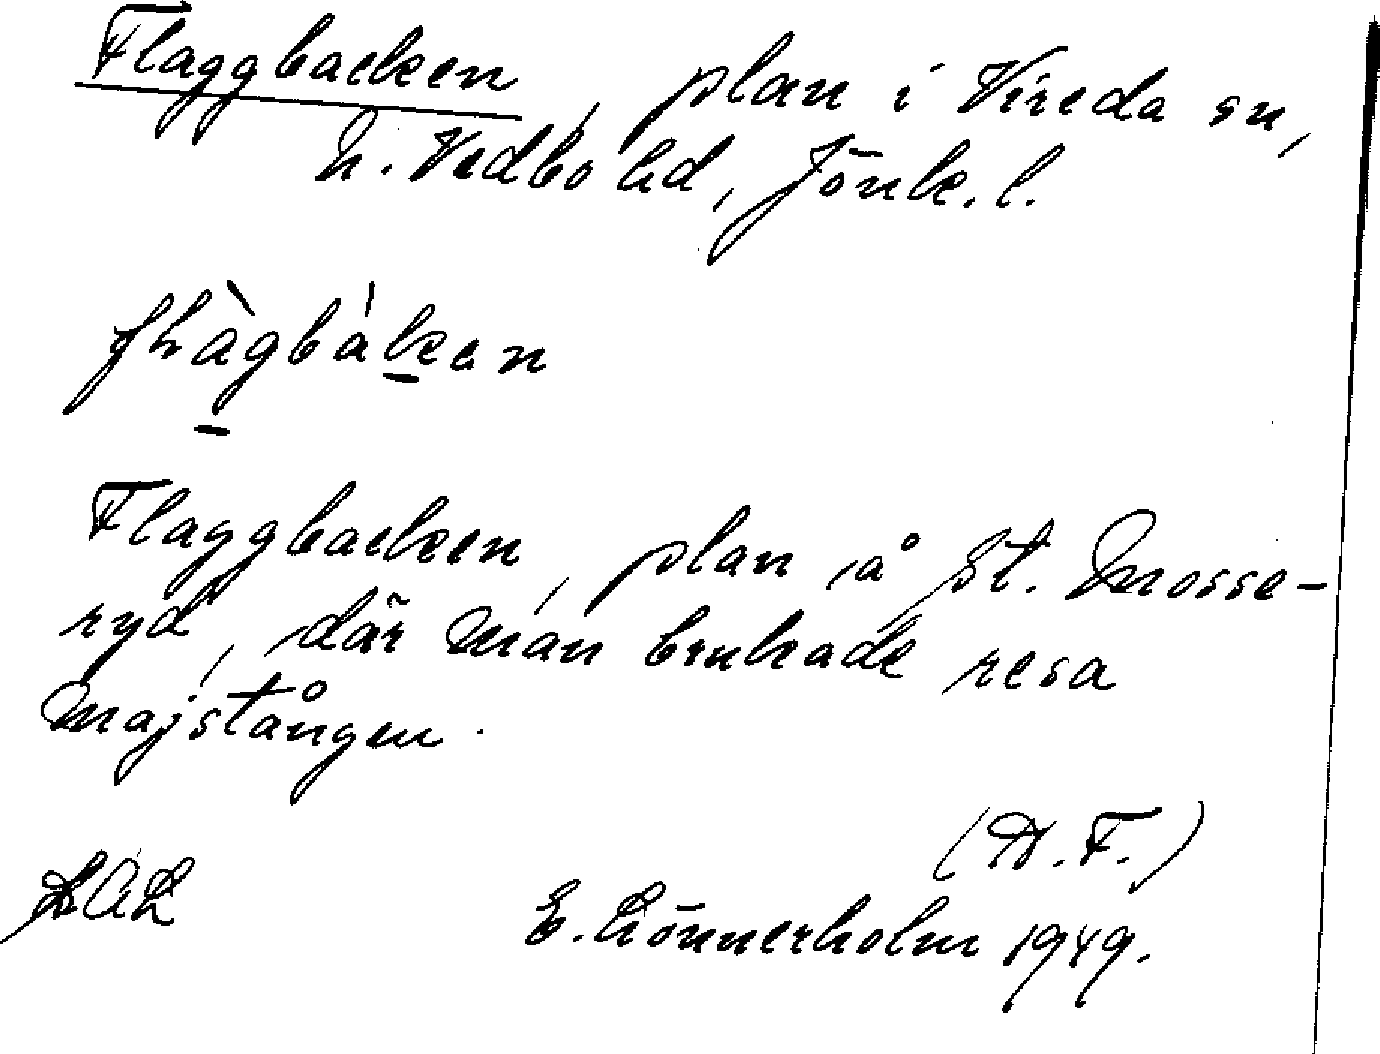 Flaggbacken, plan i Vireda sn,
N. Vedbo hd, Jönk. l.
Flaggbacken, plan å St. Mosse-
ryd, där man brukade resa
majstången.
E. Lönnerholm 1949.